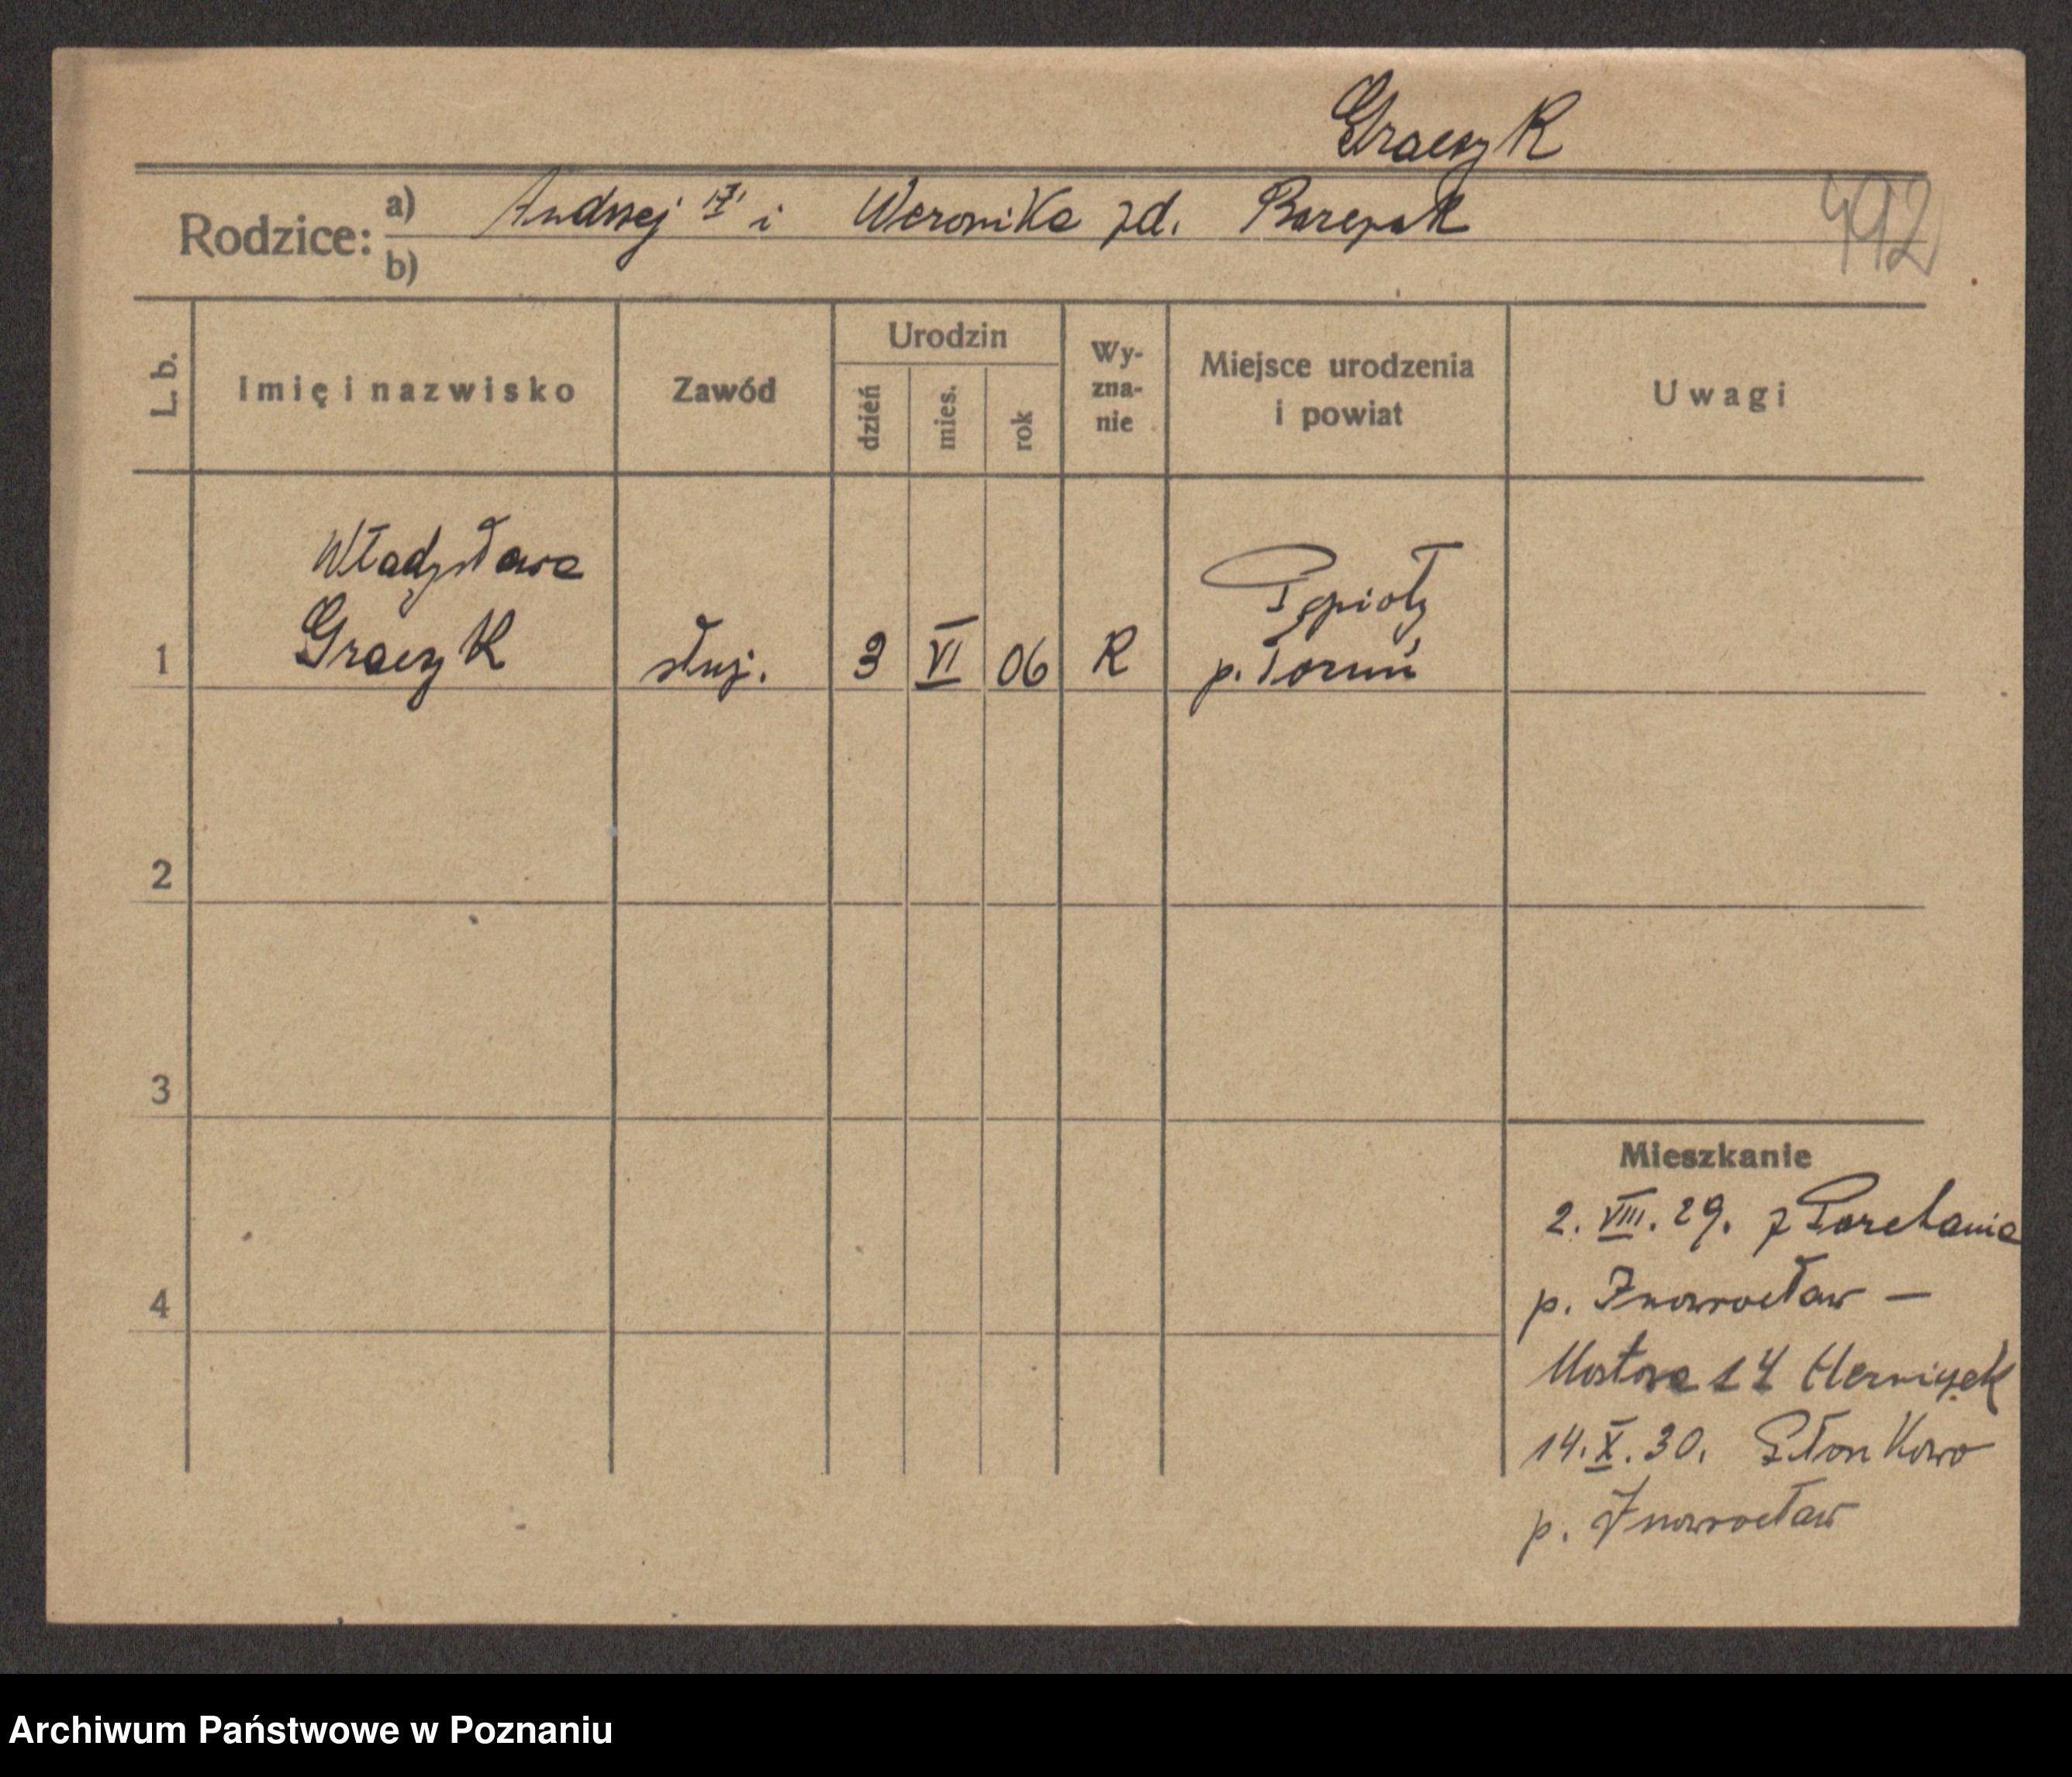 Graczyk
Rodzice: a) Andrzej i Weronika zd.
b)
492
L. b.
Imię i nazwisko
Zawód
Urodzin
dzień
mies.
rok
Wy-
zna-
nie
Miejsce urodzenia
i powiat
Uwagi
Władysława
Graczyk
1 służ. 3 VI 06 R p. Toruń
2
3
4
Mieszkanie
2. VIII. 29. z Parchania
p. Inowrocław —
Mostowa 14
14. X. 30. Słonkowo
p. Inowrocław
Archiwum Państwowe w Poznaniu